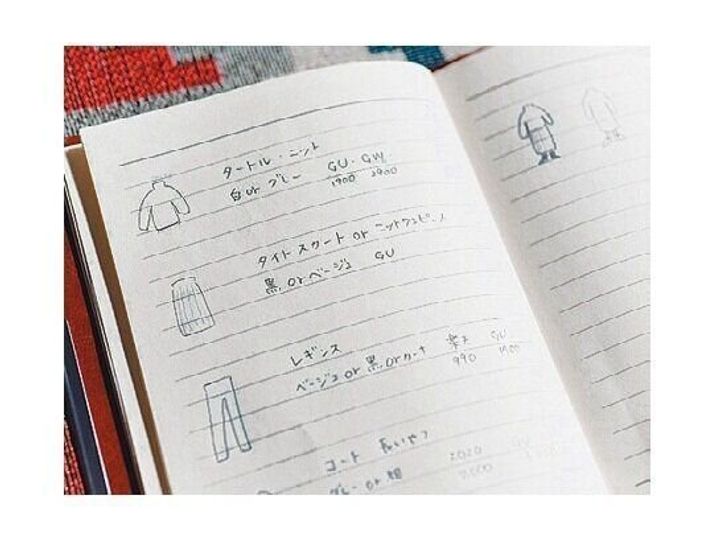 タートル・ニット
白 or グレー GU・GW
1900 2900
タイトスカート or ニットワンピース
黒 or ベージュ GU
レギンス
ベージュ or 黒 or カーキ 楽天 GU
990 1900
コート 長いやつ
グレー or 紺 2020